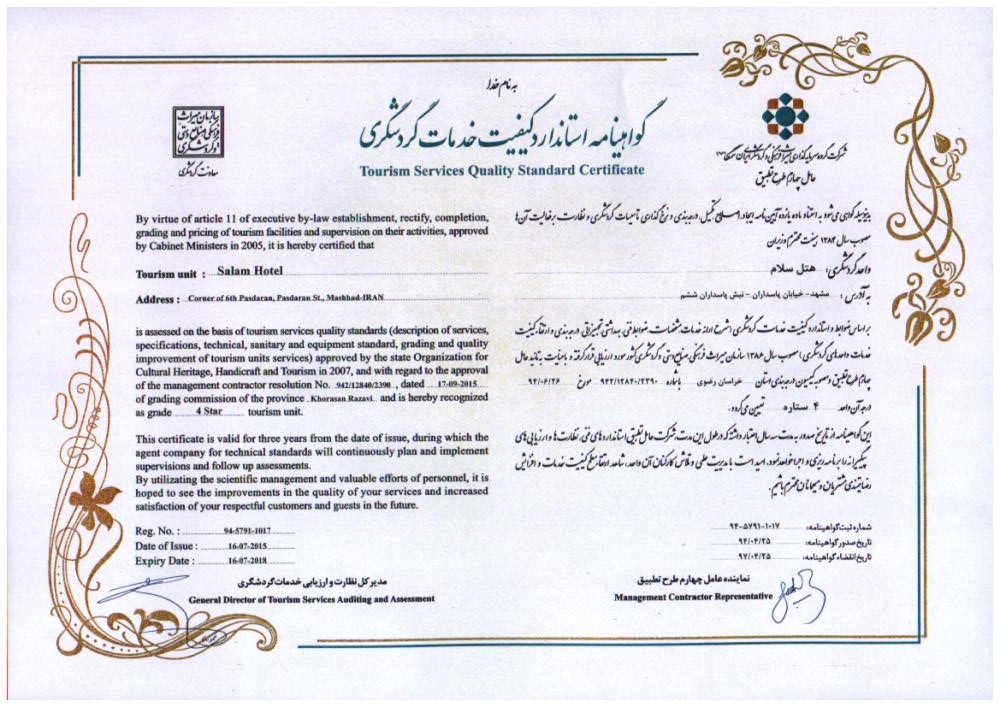 به نام خدا
گواهینامه استاندارد کیفیت خدمات گردشگری
Tourism Services Quality Standard Certificate
سازمان میراث
فرهنگی صنایع دستی
و گردشگری
معاونت گردشگری
عامل چهارم طرح تطبیق
By virtue of article 11 of executive by-law establishment, rectify, completion,
grading and pricing of tourism facilities and supervision on their activities, approved
by Cabinet Ministers in 2005, it is hereby certified that
Tourism unit : Salam Hotel
Address : Corner of 6th Pasdaran, Pasdaran St., Mashhad-IRAN
is assessed on the basis of tourism services quality standards (description of services,
specifications, technical, sanitary and equipment standard, grading and quality
improvement of tourism units services) approved by the state Organization for
Cultural Heritage, Handicraft and Tourism in 2007, and with regard to the approval
of the management contractor resolution No. 942/12840/2390 , dated 17-09-2015
of grading commission of the province Khorasan Razavi and is hereby recognized
as grade 4 Star tourism unit.
This certificate is valid for three years from the date of issue, during which the
agent company for technical standards will continuously plan and implement
supervisions and follow up assessments.
By utilizing the scientific management and valuable efforts of personnel, it is
hoped to see the improvements in the quality of your services and increased
satisfaction of your respectful customers and guests in the future.
Reg. No. : 94-5791-1017
Date of Issue : 16-07-2015
Expiry Date : 16-07-2018
مدیر کل نظارت و ارزیابی خدمات گردشگری
General Director of Tourism Services Auditing and Assessment
بدینوسیله گواهی می شود به استناد ماده یازده آیین نامه ایجاد، اصلاح، تکمیل، درجه بندی و نرخ گذاری تاسیسات گردشگری و نظارت بر فعالیت آن ها
مصوب سال ۱۳۸۴ هیئت محترم وزیران
واحد گردشگری: هتل سلام
به آدرس: مشهد- خیابان پاسداران - نبش پاسداران ششم
بر اساس ضوابط و استاندارد کیفیت خدمات گردشگری (شرح ارائه خدمات، مشخصات، ضوابط فنی، بهداشتی، تجهیزاتی، درجه بندی و ارتقاء کیفیت
خدمات واحدهای گردشگری) مصوب سال ۱۳۸۶ سازمان میراث فرهنگی، صنایع دستی و گردشگری کشور مورد ارزیابی قرار گرفته و با عنایت به تائید عامل
چهارم طرح تطبیق و مصوبه کمیسیون درجه بندی استان خراسان رضوی بشماره ۹۴۲/۱۲۸۴۰/۲۳۹۰ مورخ ۹۴/۰۶/۲۶
درجه آن واحد ۴ ستاره تعیین می گردد.
این گواهینامه از تاریخ صدور به مدت سه سال اعتبار داشته که در طول این مدت، شرکت عامل تطبیق استانداردهای فنی، نظارت ها و ارزیابی های
پیگیرانه را برنامه ریزی و اجرا خواهد نمود. امید است با مدیریت علمی و تلاش کارکنان آن واحد، شاهد ارتقا سطح کیفیت خدمات و افزایش
رضایتمندی مشتریان و میهمانان محترم باشیم.
شماره ثبت گواهینامه: ۹۴-۵۷۹۱-۱۰۱۷
تاریخ صدور گواهینامه: ۹۴/۰۴/۲۵
تاریخ انقضاء گواهینامه: ۹۷/۰۴/۲۵
نماینده عامل چهارم طرح تطبیق
Management Contractor Representative